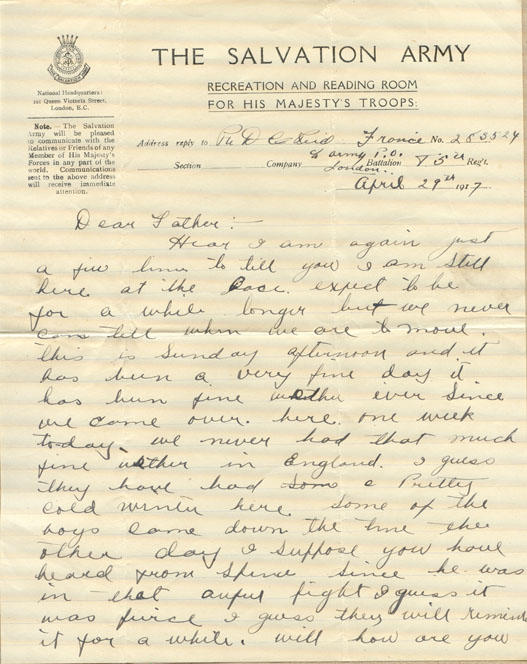 THE SALVATION ARMY
RECREATION AND READING ROOM
FOR HIS MAJESTY'S TROOPS:
National Headquarters:
101 Queen Victoria Street,
London, E.C.
Note. – The Salvation
Army will be pleased
to communicate with the
Relatives or Friends of any
Member of His Majesty's
Forces in any part of the
world. Communications
sent to the above address
will receive immediate
attention.
Address reply to Pte D C Reid France No.
Section Company Army P.O. Battalion Regt.
London.
April 29th 1917.
Dear Father:–
Hear I am again just
a few lines to tell you I am still
here at the Bace. expect to be
for a while longer but we never
can tell when we are to move.
this is Sunday afternoon and it
has been a very fine day it
has been fine wether ever since
we came over. here. one week
today. we never had that much
fine wether in England. I guess
they have had some Pretty
cold winter here. some of the
boys came down the line the
other day I suppose you have
heard from Spence since he was
in that awful fight I guess it
was fierce I guess they will remember
it for a while. will how are you